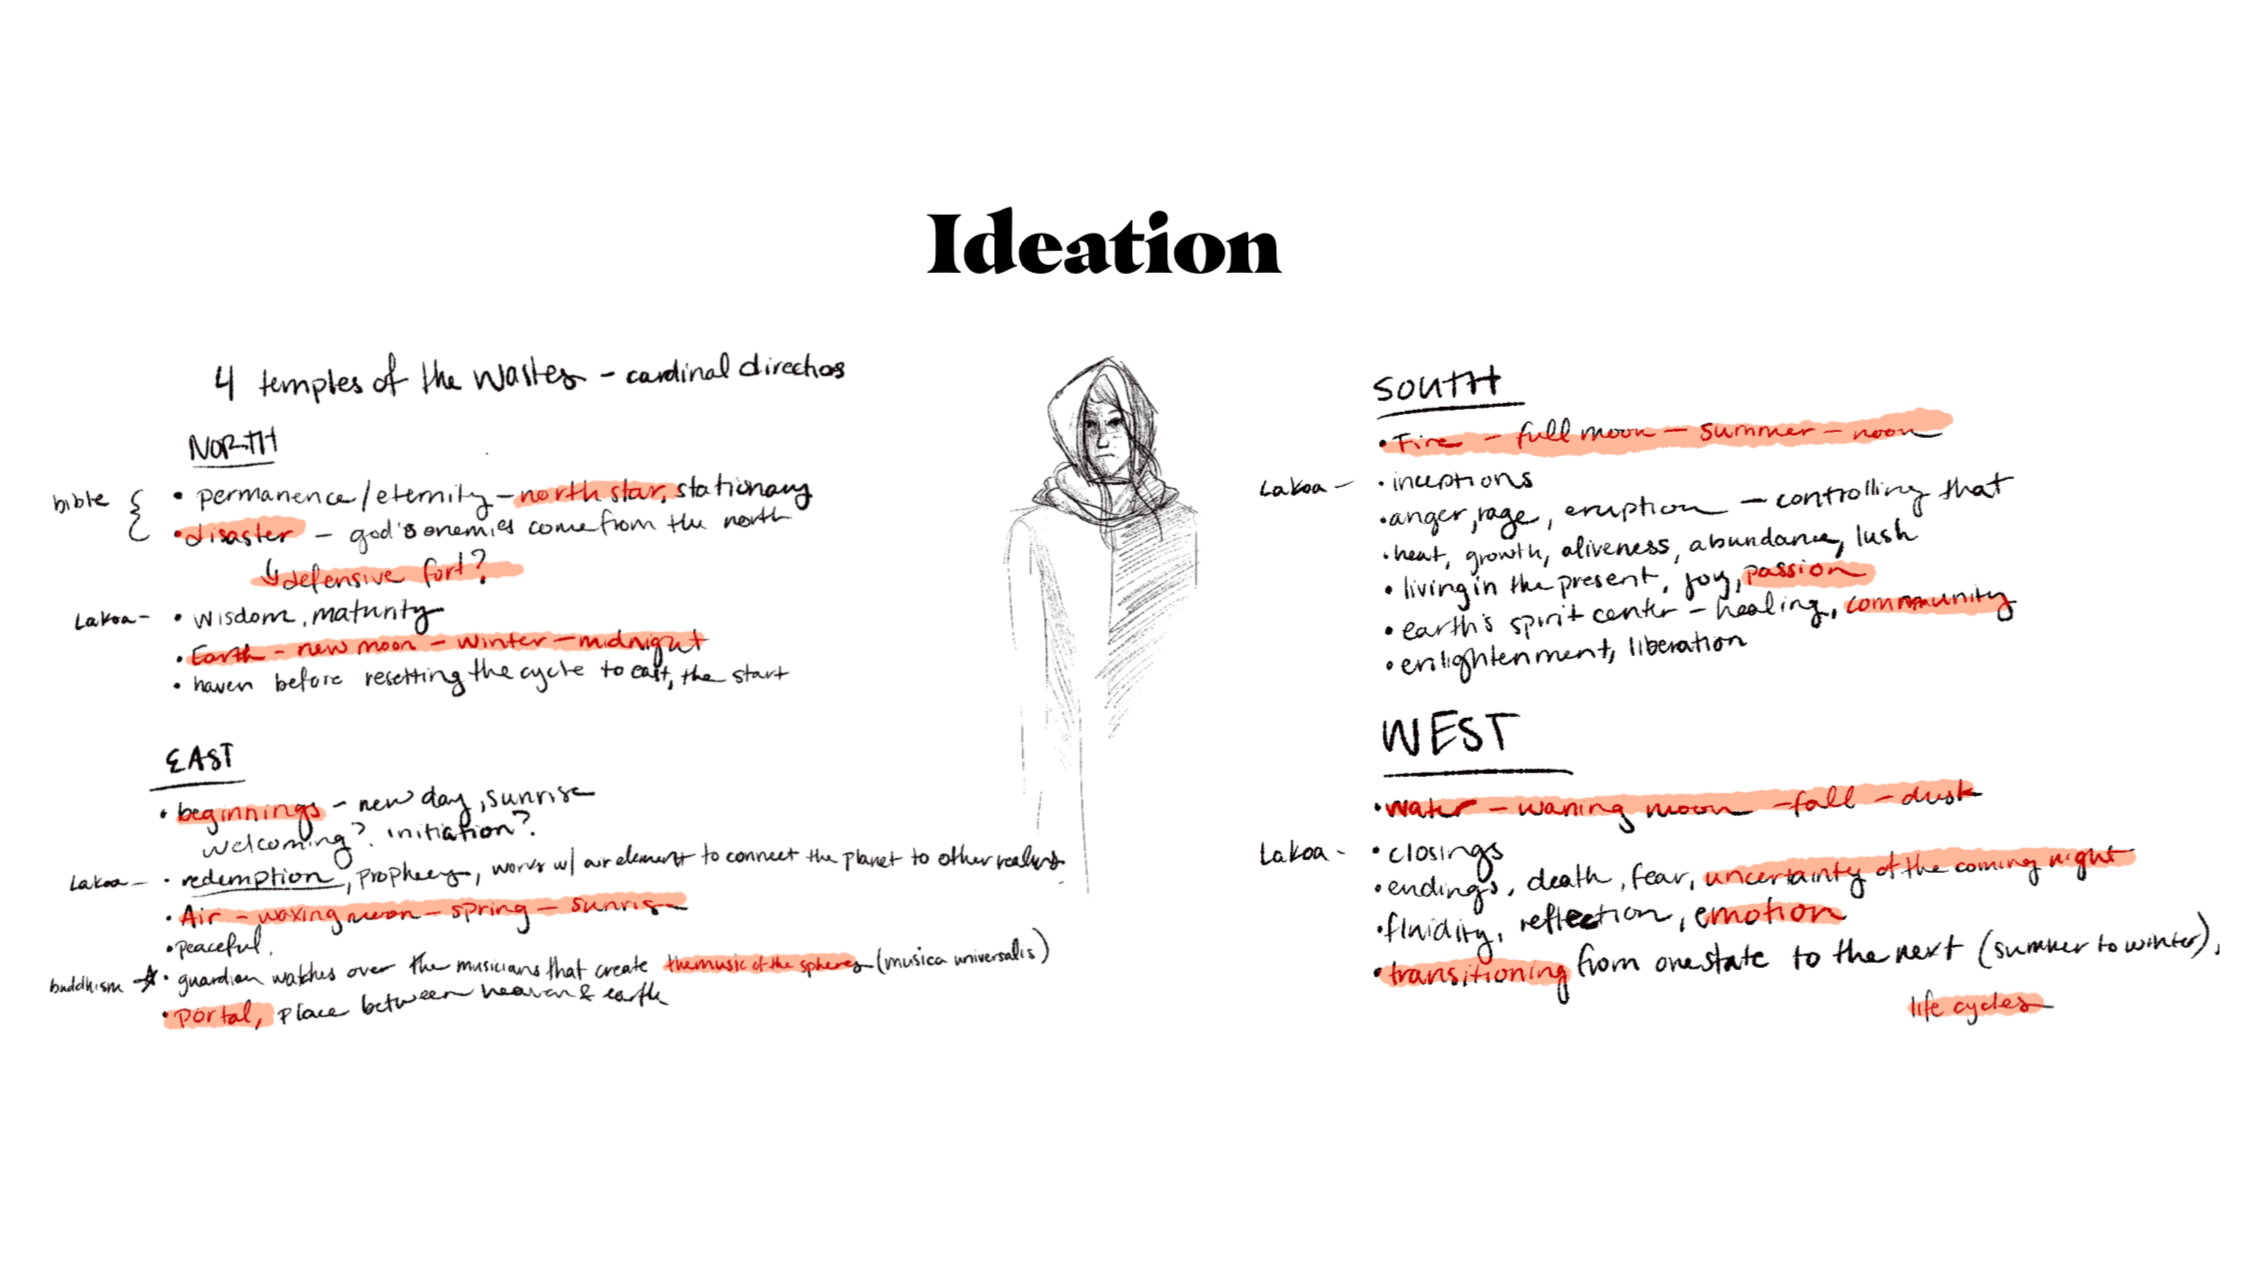 Ideation
4 temples of the Wastes - cardinal directios
NORTH
bible { • permanence/eternity - north star, stationary
• disaster - god's enemies come from the north
↳ defensive fort?
Lakoa - • wisdom, maturity
• Earth - new moon - winter - midnight
• haven before resetting the cycle to east, the start
EAST
• beginnings - new day, sunrise
welcoming? initiation?
Lakoa - • redemption, prophecy, works w/ air element to connect the planet to other realms
• Air - waxing moon - spring - sunrise
• peaceful.
buddhism ☆ • guardian watches over the musicians that create the music of the spheres (musica universalis)
• portal, place between heaven & earth
SOUTH
• Fire - full moon - summer - noon
Lakoa - • inceptions
• anger, rage, eruption - controlling that
• heat, growth, aliveness, abundance, lush
• living in the present, joy, passion
• earth's spirit center - healing, community
• enlightenment, liberation
WEST
• Water - waning moon - fall - dusk
Lakoa - • closings
• endings, death, fear, uncertainty of the coming night
• fluidity, reflection, emotion
• transitioning from one state to the next (summer to winter),
life cycles